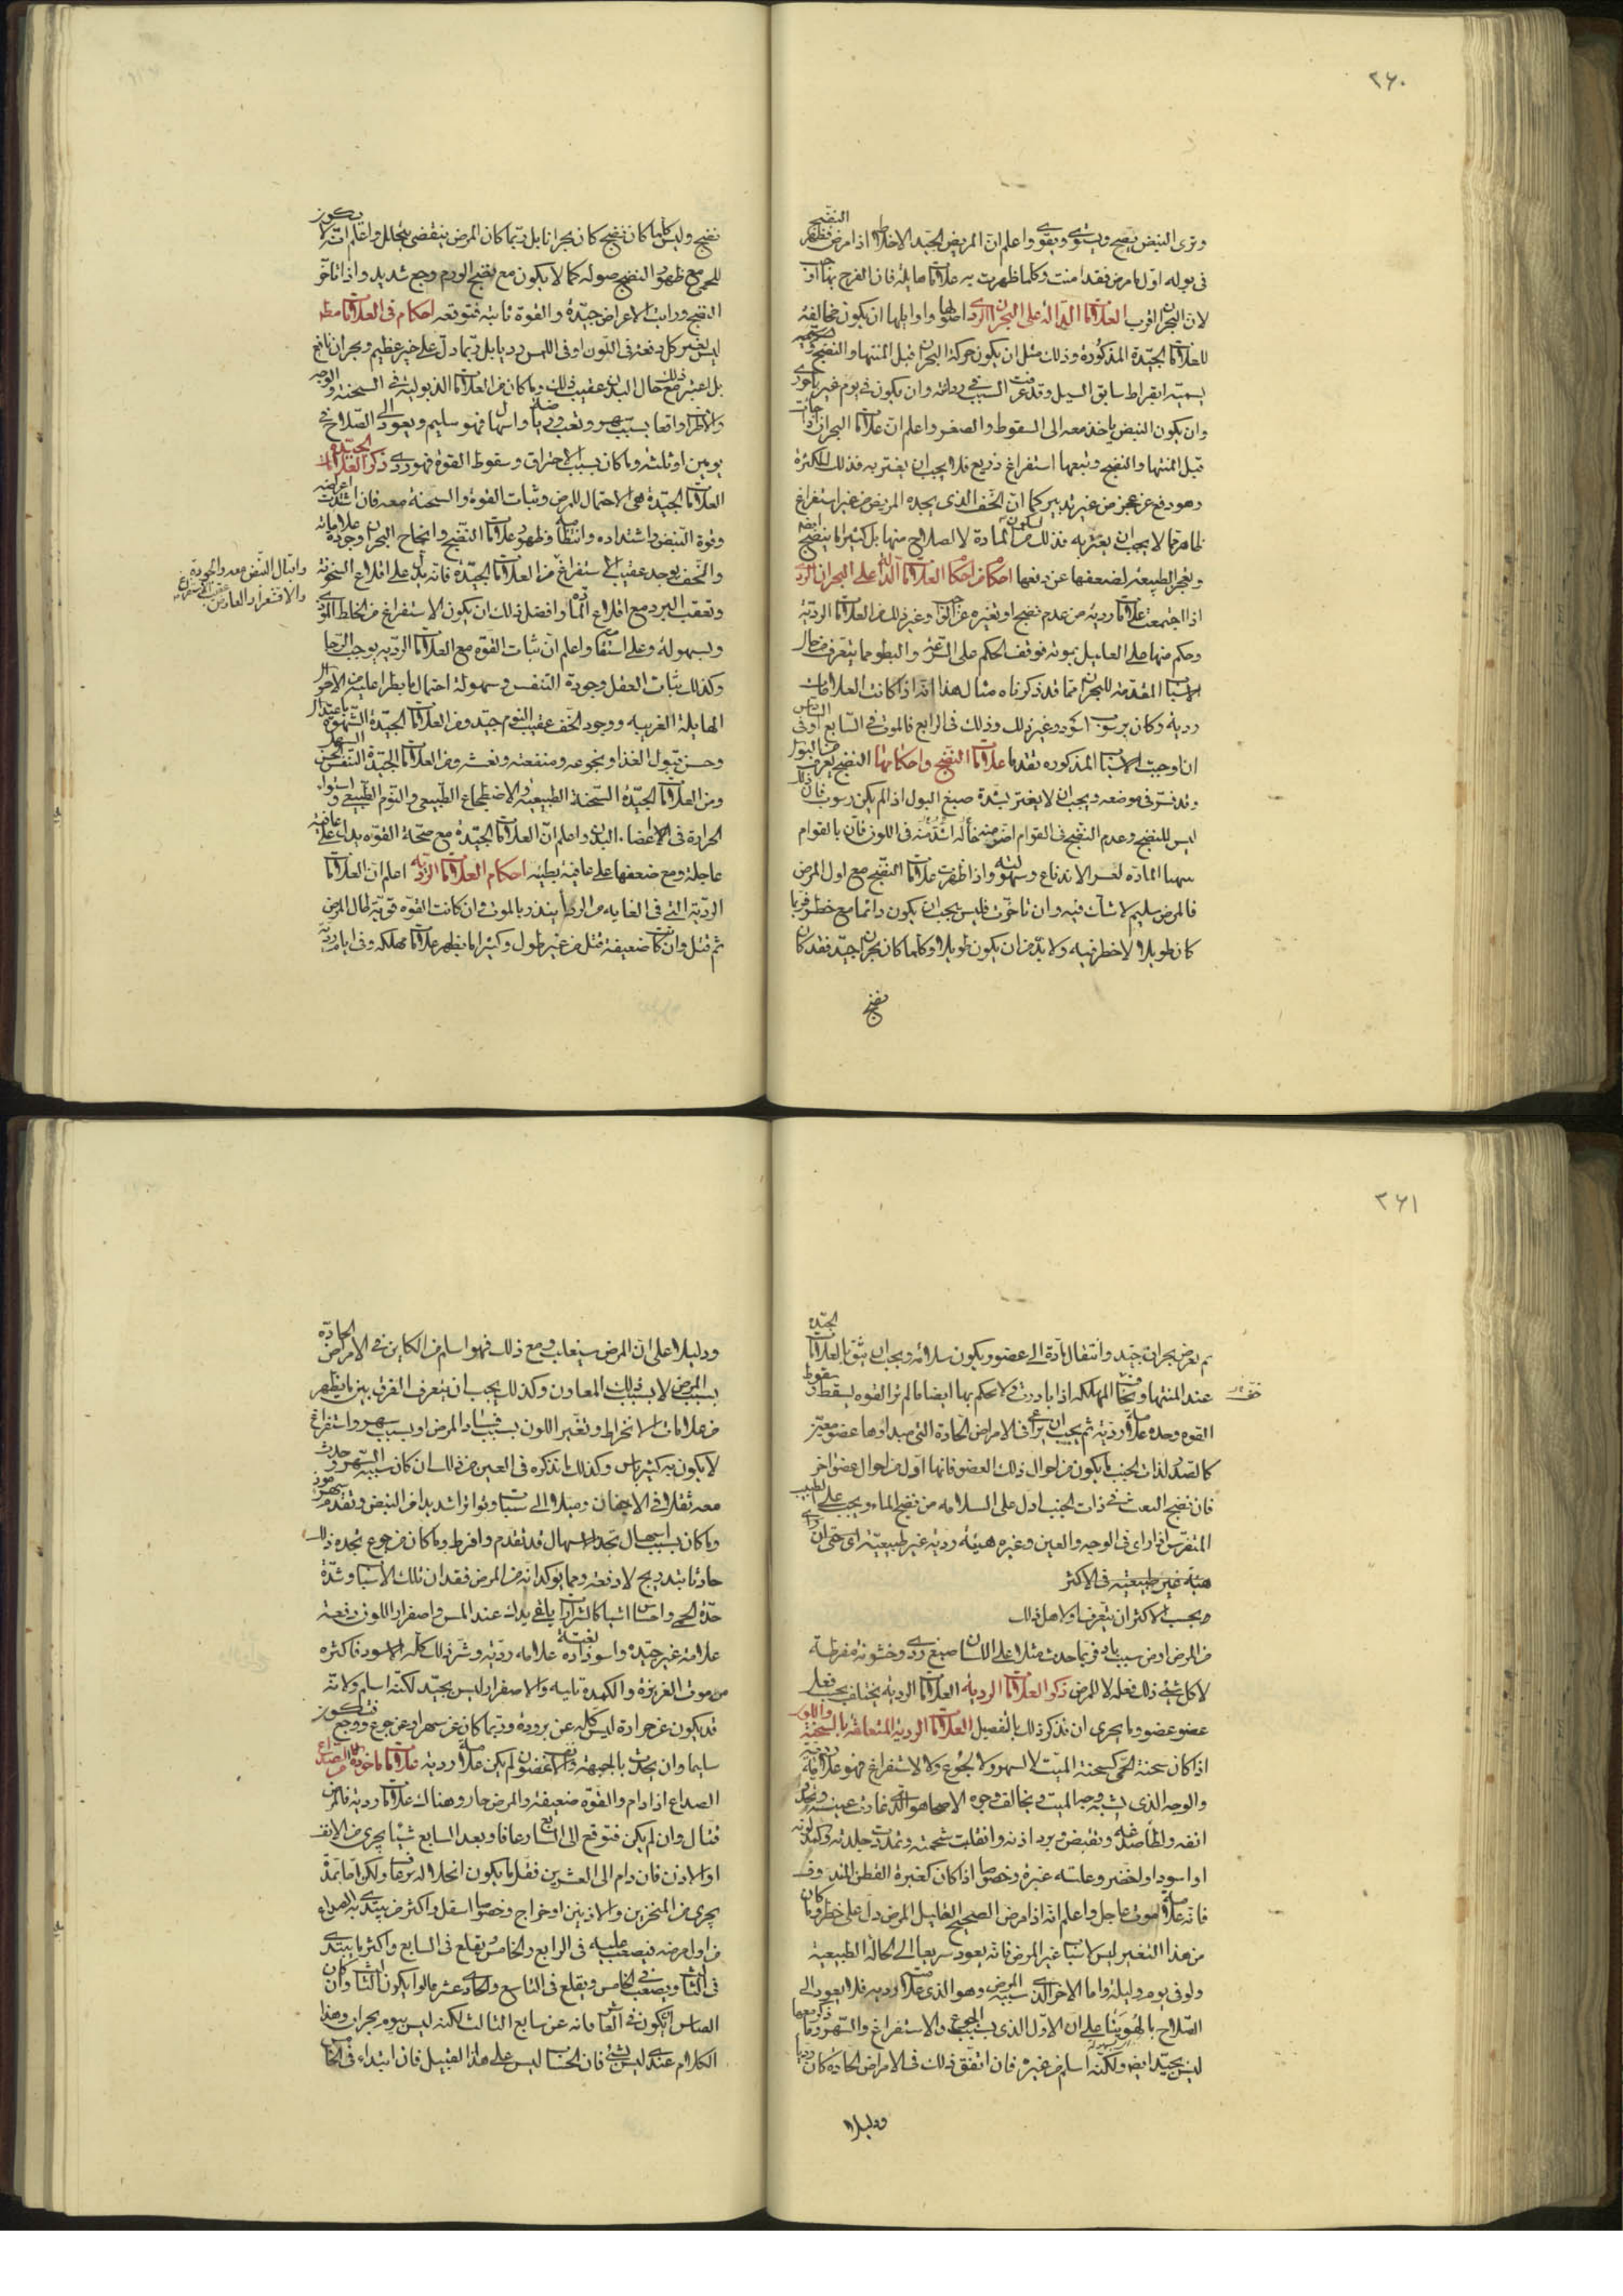 ٢٦٠
وترى النبض يصح ويستوى ويقوى واعلم ان المريض الجيد الاخلاط اذا مرض فظهر النضج
فى بوله اول ما مرض فقد امنت وكلما ظهرت به علامات هايلة فان الفرج بها اذن
لان البحران اقرب العلامات الدالة على البحران الردى اصولها واوايلها ان يكون مخالفة
للعلامات الجيدة المذكورة وذلك مثل ان يكون حركة البحران قبل المنتها والنضج
يسميه ابقراط سابق السيل وقد عرفت السبب فى رداءته وان يكون فى يوم غير باحورى
وان يكون النبض ياخذ معه الى السقوط والصغر واعلم ان علامات البحران اذا جات
قبل المنتها والنضج وتبعها استفراغ ذريع فلا يجب ان يغتر به فذلك للكثرة
وهو دفع عن عجز من غير تدبير كما ان الخف الذى يجده المريض من غير استفراغ
ظاهر لا يجب ان يغتر به فذلك لسكون من المادة لا لصلاح منها بل كثيرا ما ينضج
وتعجز الطبيعه لضعفها عن دفعها احكام من احكام العلامات الدالة على البحران الردى
اذا اجتمعت علامات ردية من عدم نضج او تغيره عن الواجب وغير ذلك من العلامات الردية
وحكم منها على العليل بموته فوقف الحكم على السرعة والبطو مما يتعرف من حال
الاسباب المقدمة للبحران مما قد ذكرناه مثال هذا انه اذا كانت العلامات
ردية وكان يرسب اسود وغير ذلك وذلك فى الرابع فالموت فى السابع او فى السادس
ان اوجبت الاسباب المذكوره تقدما علامات النضج واحكامها النضج يعرف من البول
وقد فسر فى موضعه ويجب ان لا يغتر بشدة صبغ البول اذا لم يكن رسوب فان ذلك
ليس للنضج وعدم النضج فى القوام اضر منه حالة اشد منه فى اللون فان بالقوام
يتهيا المادة لعسر الاندفاع وسهولته واذا ظهرت علامات النضج مع اول المرض
فالمرض سليم لا شك فيه وان تاخرت فليس يجب ان يكون دائما مع خطر فربما
كان طويلا لا خطر فيه ولا بد من ان يكون طويلا وكلما كان بحران جيد فقد كان
نضج
نضج وليس كلما كان نضج كان بحرانا بل ربما كان المرض ينقضى بتحلل واعلم انه لا يكون
للحمى مع ظهور النضج صوله كما لا يكون مع نضج الورم وجع شديد واذا تاخر
النضج ورايت الاعراض جيدة والقوة ثابتة فتوقعه احكام فى العلامات مطلقا
ليس تغير كل دفعة فى اللون او فى اللمس رديا بل ربما دل على خير عظيم وبحران نافع
بل اعتبر مع ذلك حال البدن عقيب ذلك وما كان من العلامات الذبوليه فى السحنة والوجه
والاطراف واقعا بسبب سهر وتعب ورياضة واسهال فهو سليم ويعود الى الصلاح فى
يومين او ثلثة وما كان بسبب الاحتراق وسقوط القوة فهو ردى ذكر العلامات الجيدة
العلامات الجيدة هى الاحتمال للمرض وثبات القوة والسحنة معه فان اشتدت اعراضه
وقوة النبض واشتداده وانتظامه وظهور علامات النضج وانجاح البحران وجودة علاماته
والخف يوجد عقيب الاستفراغ من العلامات الجيدة فانه يدل على اقلاع السخونة
واقبال النبض معه والجودة
والاقشعرار العارض عقيب الاستفراغ
وتعقب البرد مع اقلاع المادة وافضل ذلك ان يكون الاستفراغ من الخلط الموذى
ولسهولة وعلى استقامة واعلم ان ثبات القوه مع العلامات الردية يوجب الرجا
وكذلك ثبات العقل وجودة التنفس وسهولة احتمال ما يطرا عليه من الاحوال
الهايلة الغريبه ووجود الخف عقيب النوم جيد ومن العلامات الجيدة الشهوة باعتدال
وحسن قبول الغذا ونجوعه ومنفعته ونعشه ومن العلامات الجيدة التنفس الحسن السهل
ومن العلامات الجيدة السحنة الطبيعية والاضطجاع الطبيعى والنوم الطبيعى واستواء
الحرارة فى الاعضا البدن واعلم ان العلامات الجيدة مع صحة القوه يدل على عافية
عاجلة ومع ضعفها على عافية بطيئة احكام العلامات الردية اعلم ان العلامات
الردية التى فى الغايه من الرداءة ينذر بالموت وان كانت القوه قوية طال المرض
ثم قتل وان كانت ضعيفة قتل من غير طول وكثيرا ما يظهر علامات مهلكه وفى ايام ردية
٢٦١
ثم يعرض بحران جيد وانتقال مادة الى عضو ويكون سلامة ويجب ان يثق بالعلامات الجيدة
عند المنتها وتخاف المهلكه اذا بادرت ولا يحكم بها ايضا ما لم تر القوه يسقط وسقوط
القوه وحده علامة ردية ثم يجب ان يراعى فى الامراض الحادة التى مبداوها عضو معين
كالصدر لذات الجنب ما يكون من احوال ذلك العضو فانها اول من احوال عضو اخر
فان نضج النفث فى ذات الجنب ادل على السلامه من نضج الماء ويجب على الطبيب
المتفرس اذا راى فى الوجه والعين وغيره هيئة ردية غير طبيعية
هيئة غير طبيعية فى الاكثر
وبحسب الاكثر ان يتعرف اولا هل ذلك
من المرض او من سبب باد فربما حدث مثلا على اللسان صبغ ردى وخشونة مفرطة
لاكل شئ ذلك فعله لا للمرض ذكر العلامات الردية العلامات الردية يختلف بحسب فعل
عضو عضو وبالحرى ان نذكر ذلك بالتفصيل العلامات الردية المتعلقة بالسحنة واللون
اذا كان سحنة الحمى كسحنة الميت لا لسهر ولا لجوع ولا لاستفراغ فهو علامة ردية
والوجه الذى يشبه وجه الميت ويخالف وجوه الاصحا هو الذى غارت عينه وتحدد
انفه ولطا صدغه وتقبض وبرد اذنه وانقلبت شحمته وتمددت جلدته وكمد لونه
او اسود او اخضر وعلته غبرة وخصوصا اذا كان كغبرة القطن المندوف
فانه علامة موت عاجل واعلم انه اذا مرض الصحيح القليل المرض دل على خطر وما كان
من هذا التغير ليس لاسباب غير المرض فانه يعود سريعا الى الحالة الطبيعية
ولو فى يوم وليلة واما الاخر الذى سببه المرض وهو الذى علامة ردية فلا يعود الى
الصلاح بالهوينا على ان الاول الذى بسبب الجوع والاستفراغ والسهر وما ذكر معها
ليس بجيد ايضا ولكنه اسلم من غيره فان اتفق ذلك فى الامراض الحادة كان رديا
ودليلا
ودليلا على ان المرض سيغلب ومع ذلك فهو اسلم من الكاين فى الامراض الحادة
بسبب المرض لا بسبب ذلك المعاون وكذلك يجب ان يتعرف الفرق بين ما يظهر
من علامات الانخراط وتغير اللون بسبب فساد المرض او بسبب سهر واستفراغ
لا يكون به كثير باس وكذلك ما نذكره فى العين من ذلك ان كان سببه السهر وحدث
معه ثقلا فى الاجفان وميلا الى سبات وتواترا شديدا فى النبض وتقدم سهر موذ
وما كان بسبب اسهال تجد الاسهال قد تقدم وافرط وما كان من جوع تجده ذلك
حادثا بتدريج لا دفعة ومما يوكد انه من المرض فقدان تلك الاسباب وشدة
حدة الحمى واحساس اشيا كالشرارات يلقى يدك عند المس واصفرار اللون دفعة
علامة غير جيدة واسوداده بغتة علامه ردية وشر ذلك كله الاسود فاكثره
من موت الغريزة والكمدة تاليه والاصفرار ليس بجيد لكنه اسلم ولانه
قد يكون عن حرارة ليس كله عن برودة وربما كان عن سهر او عن جوع ووجع فتكون
سليما وان يحدث بالجبهة والانف غضون لم يكن علامة ردية علامات ماخوذة من الصداع
الصداع اذا دام والقوة ضعيفة والمرض حار وهناك علامات ردية فالمرض
قتال وان لم يكن فتوقع الى السابع رعافا وبعد السابع شيئا يجرى من الانف
او الاذن فان دام الى العشرين فقلما يكون انحلاله برعاف ولكن اما بمدة
يجرى من المنخرين والاذنين او خراج وخصوصا اسفل واكثر من يبتدى به الصداع
من اول مرضه فيصعب عليه فى الرابع والخامس ويقلع فى السابع واكثر ما يبتدى
فى الثالث ويصعب فى الخامس ويقلع فى التاسع والحادى عشر قالوا يكون الثالث وان كان
القياس ان يكون فى العاشر فانه عن سابع الثالث لكنه ليس بيوم بحران وهذا
الكلام عندى ليس بشئ فان الحساب ليس على هذا القبيل فان ابتداء فى الخامس